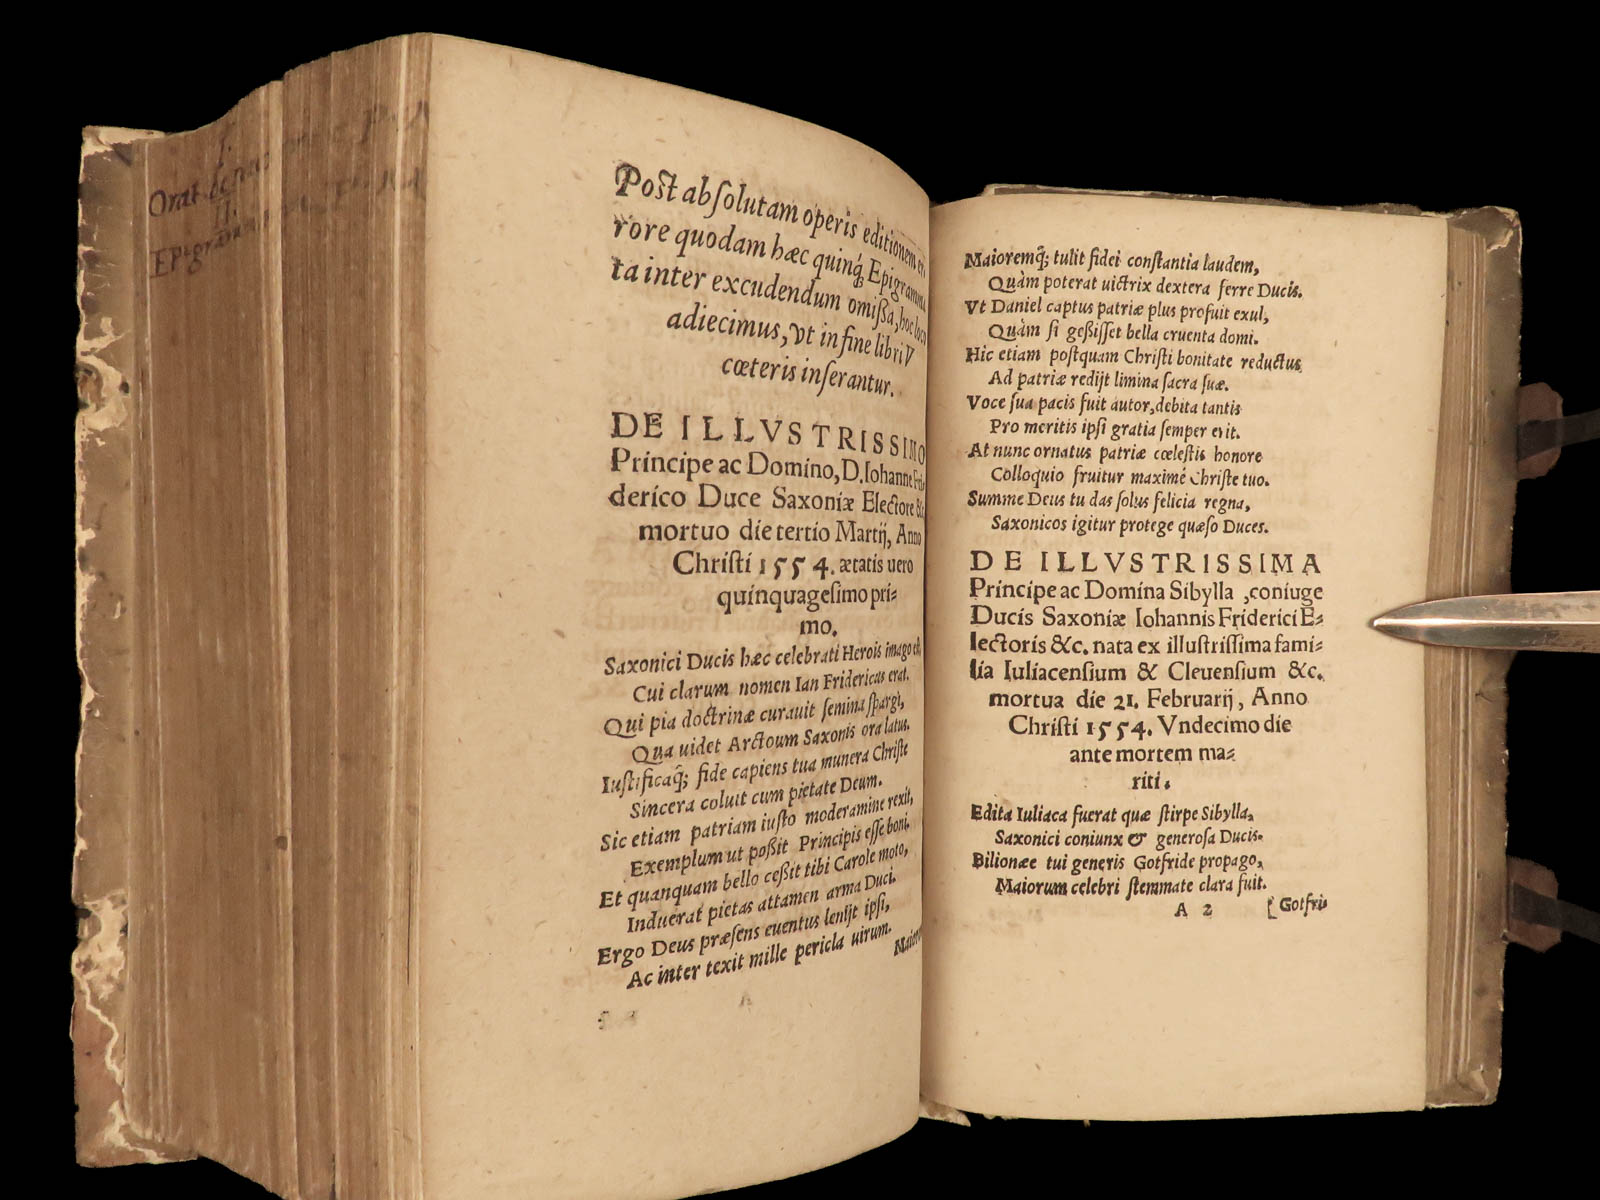 I.
Orat.
II.
Epigram
Post absolutam operis editionem er⸗
rore quodam hæc quinq́; Epigramma
ta inter excudendum omißa, hoc loco
adiecimus, vt in fine libri V
cœteris inserantur.
DE ILLVSTRISSIMO
Principe ac Domino, D. Iohanne Fri⸗
derico Duce Saxoniæ Electore &c.
mortuo die tertio Martij, Anno
Christi 1554. ætatis uero
quinquagesimo pri⸗
mo.
Saxonici Ducis hæc celebrati Herois imago est,
Cui clarum nomen Ian Fridericus erat.
Qui pia doctrinæ curauit semina spargi,
Qua uidet Arctoum Saxonis ora latus.
Iustificaq́; fide capiens tua munera Christe
Sincera coluit cum pietate Deum.
Sic etiam patriam iusto moderamine rexit,
Exemplum ut poßit Principis esse boni.
Et quanquam bello ceßit tibi Carole moto,
Induerat pietas attamen arma Duci.
Ergo Deus præsens euentus lenijt ipsi,
Ac inter texit mille pericla uirum.
Maiorem
Maioremq́; tulit fidei constantia laudem,
Quàm poterat uictrix dextera ferre Ducis.
Vt Daniel captus patriæ plus profuit exul,
Quàm si geßisset bella cruenta domi.
Hic etiam postquam Christi bonitate reductus
Ad patriæ redijt limina sacra suæ.
Voce sua pacis fuit autor, debita tantis
Pro meritis ipsi gratia semper erit.
At nunc ornatus patriæ cœlestis honore
Colloquio fruitur maximé Christe tuo.
Summe Deus tu das solus felicia regna,
Saxonicos igitur protege quæso Duces.
DE ILLVSTRISSIMA
Principe ac Domina Sibylla, coniuge
Ducis Saxoniæ Iohannis Friderici E⸗
lectoris &c. nata ex illustrissima fami⸗
lia Iuliacensium & Cleuensium &c.
mortua die 21. Februarij, Anno
Christi 1554. Vndecimo die
ante mortem ma⸗
riti.
Edita Iuliaca fuerat quæ stirpe Sibylla,
Saxonici coniunx & generosa Ducis.
Bilionæe tui generis Gotfride propago,
Maiorum celebri stemmate clara fuit.
A 2 [Gotfris